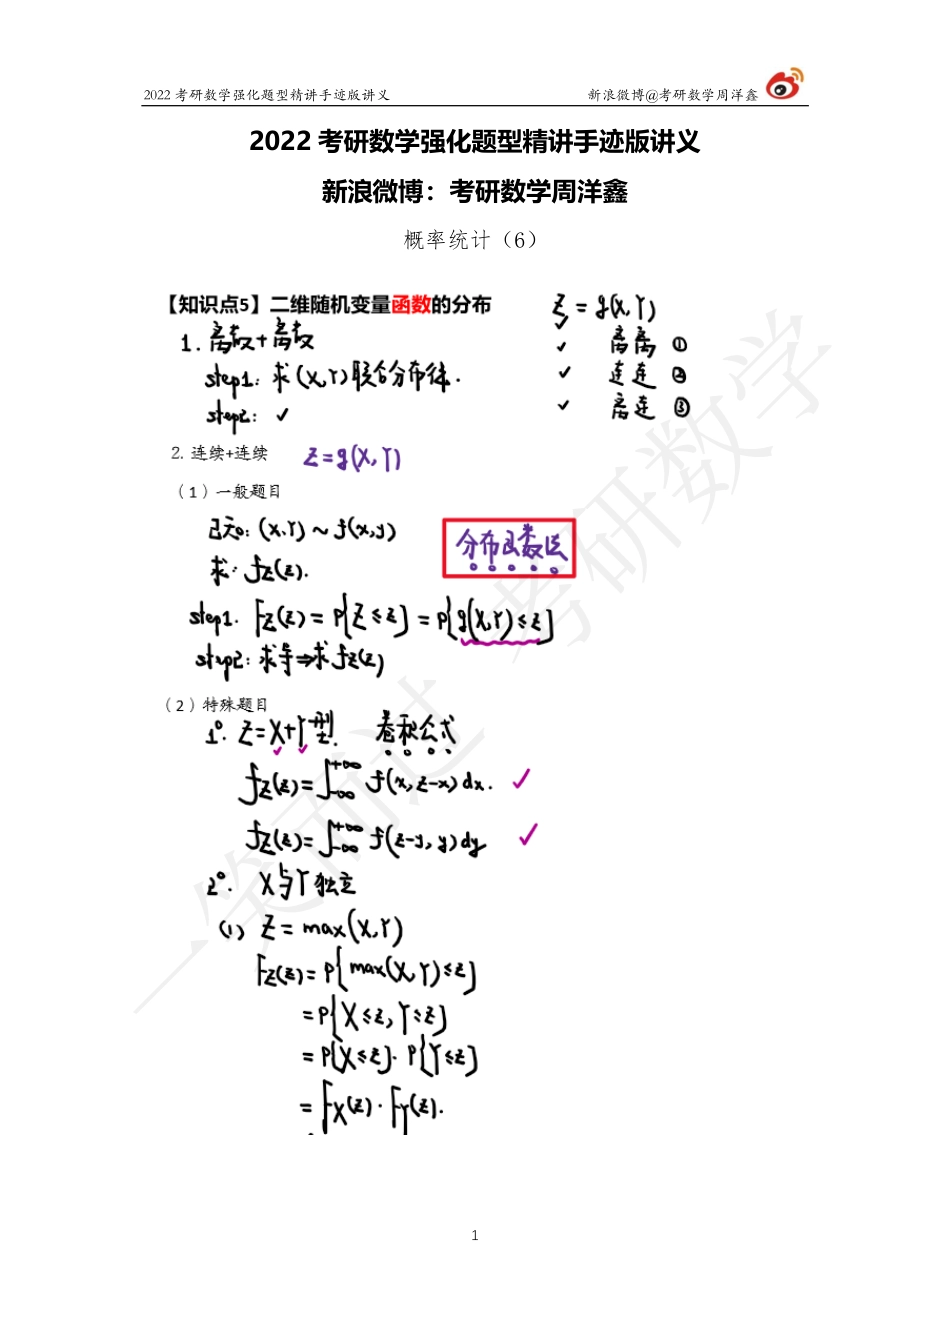 2022 考研数学强化题型精讲手迹版讲义 新浪微博@考研数学周洋鑫
2022 考研数学强化题型精讲手迹版讲义
新浪微博：考研数学周洋鑫
概率统计（6）
【知识点5】二维随机变量函数的分布
Z = g(X,Y)
1. 离散+离散
✓ 离离 ①
step1: 求(X,Y)联合分布律.
✓ 连连 ②
step2: ✓
✓ 离连 ③
2. 连续+连续 Z=g(X,Y)
（1）一般题目
已知: (X,Y) ~ f(x,y)
分布函数法
求: fZ(z).
step1. FZ(z) = P{Z≤z} = P{g(X,Y)≤z}
step2: 求导⇒求fZ(z)
（2）特殊题目
1°. Z=X+Y型. 卷积公式
fZ(z)=∫_{-∞}^{+∞} f(x,z-x)dx. ✓
fZ(z)=∫_{-∞}^{+∞} f(z-y,y)dy ✓
2°. X与Y独立
(1) Z = max(X,Y)
FZ(z)= P{max(X,Y)≤z}
=P{X≤z,Y≤z}
= P{X≤z}·P{Y≤z}
= FX(z)·FY(z).
一笑而过 考研数学
1